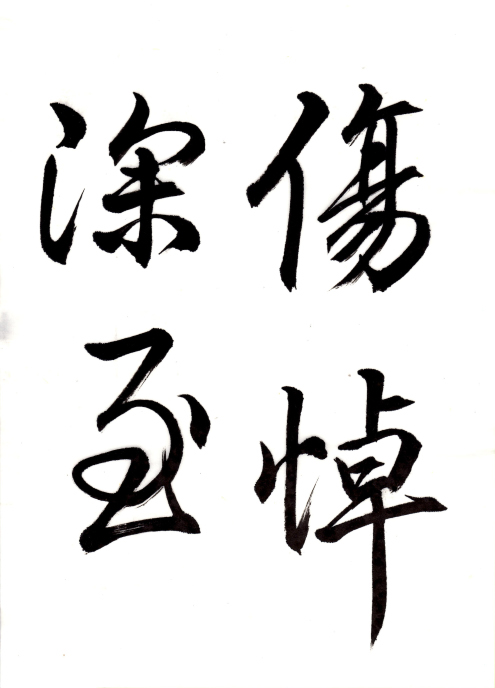 傷悼
深至